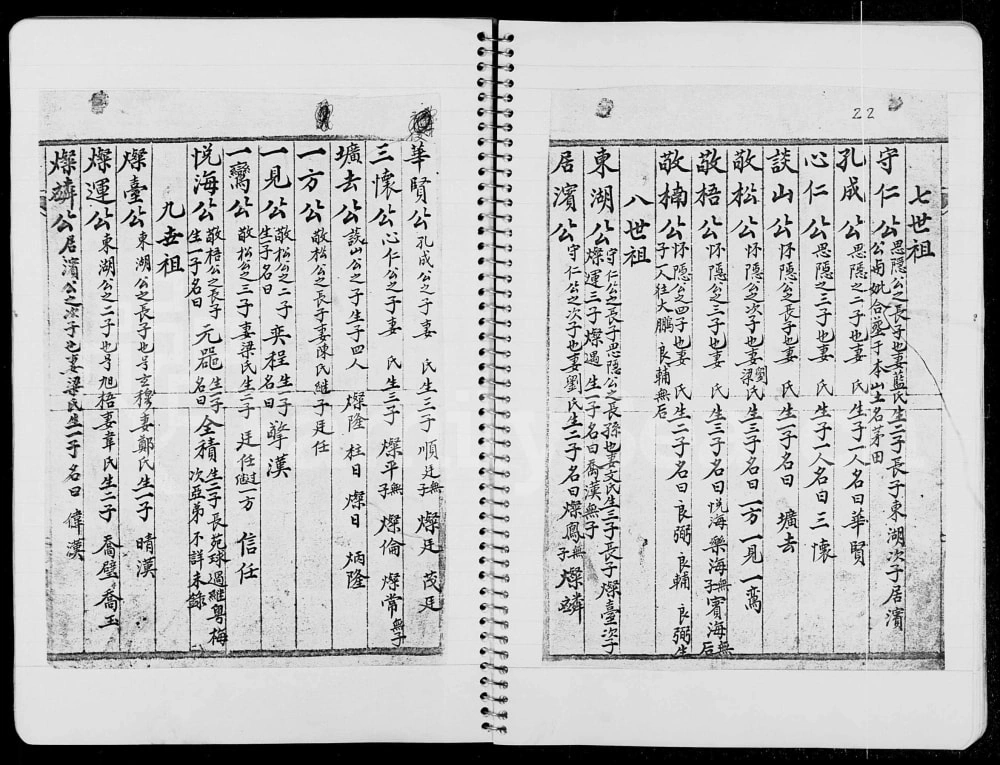 22
七世祖
守仁公 思隐公之長子也妻藍氏生二子長子東湖次子居濱
公両妣合塟于本山土名茅田
孔成公 思隐之二子也妻 氏生子一人名曰華賢
心仁公 思隐之三子也妻 氏生子一人名曰三懷
談山公 怀隐公之長子也妻 氏生一子名曰 壙去
敬松公 怀隐公之次子也妻劉梁氏生三子名曰一方一見一鸾
敬梧公 怀隐公之三子也妻 氏生三子名曰悦海樂海無子賓海無后
敬楠公 怀隐公之四子也妻 氏生二子名曰良弼 良輔 良弼生
子一人往大鹏良輔無后
八世祖
東湖公 守仁公之長子思隐公之長孫也妻文氏生三子長子燦臺次子
燦運三子燦過 生一子名曰喬漢無子
居濱公 守仁公之次子也妻劉氏生二子名曰燦鳳無子燦麟
華賢公 孔成公之子妻 氏生三子順廷無子 燦廷 茂廷
三懷公 心仁公之子妻 氏生三子 燦平無子 燦倫 燦常無子
壙去公 談山公之子生子四人 燦隆 柱日 燦日 炳隆
一方公 敬松公之長子妻陳氏継子廷任
一見公 敬松公之二子 奕程生子 擎漢
生一子名曰 名曰
一鸾公 敬松公之三子妻梁氏生二子 廷任 一方 信任
悦海公 敬梧公之長子 元噐生一子 全積生二子長苑球過継粤梅
生一子名曰 名曰 次亞弟不詳未錄
九世祖
燦臺公 東湖公之長子也号玄穆妻鄭氏生一子 晴漢
燦運公 東湖公之二子也号旭梧妻韋氏生二子 喬璧喬玉
燦麟公 居濱公之次子也妻梁氏生一子名曰 偉漢